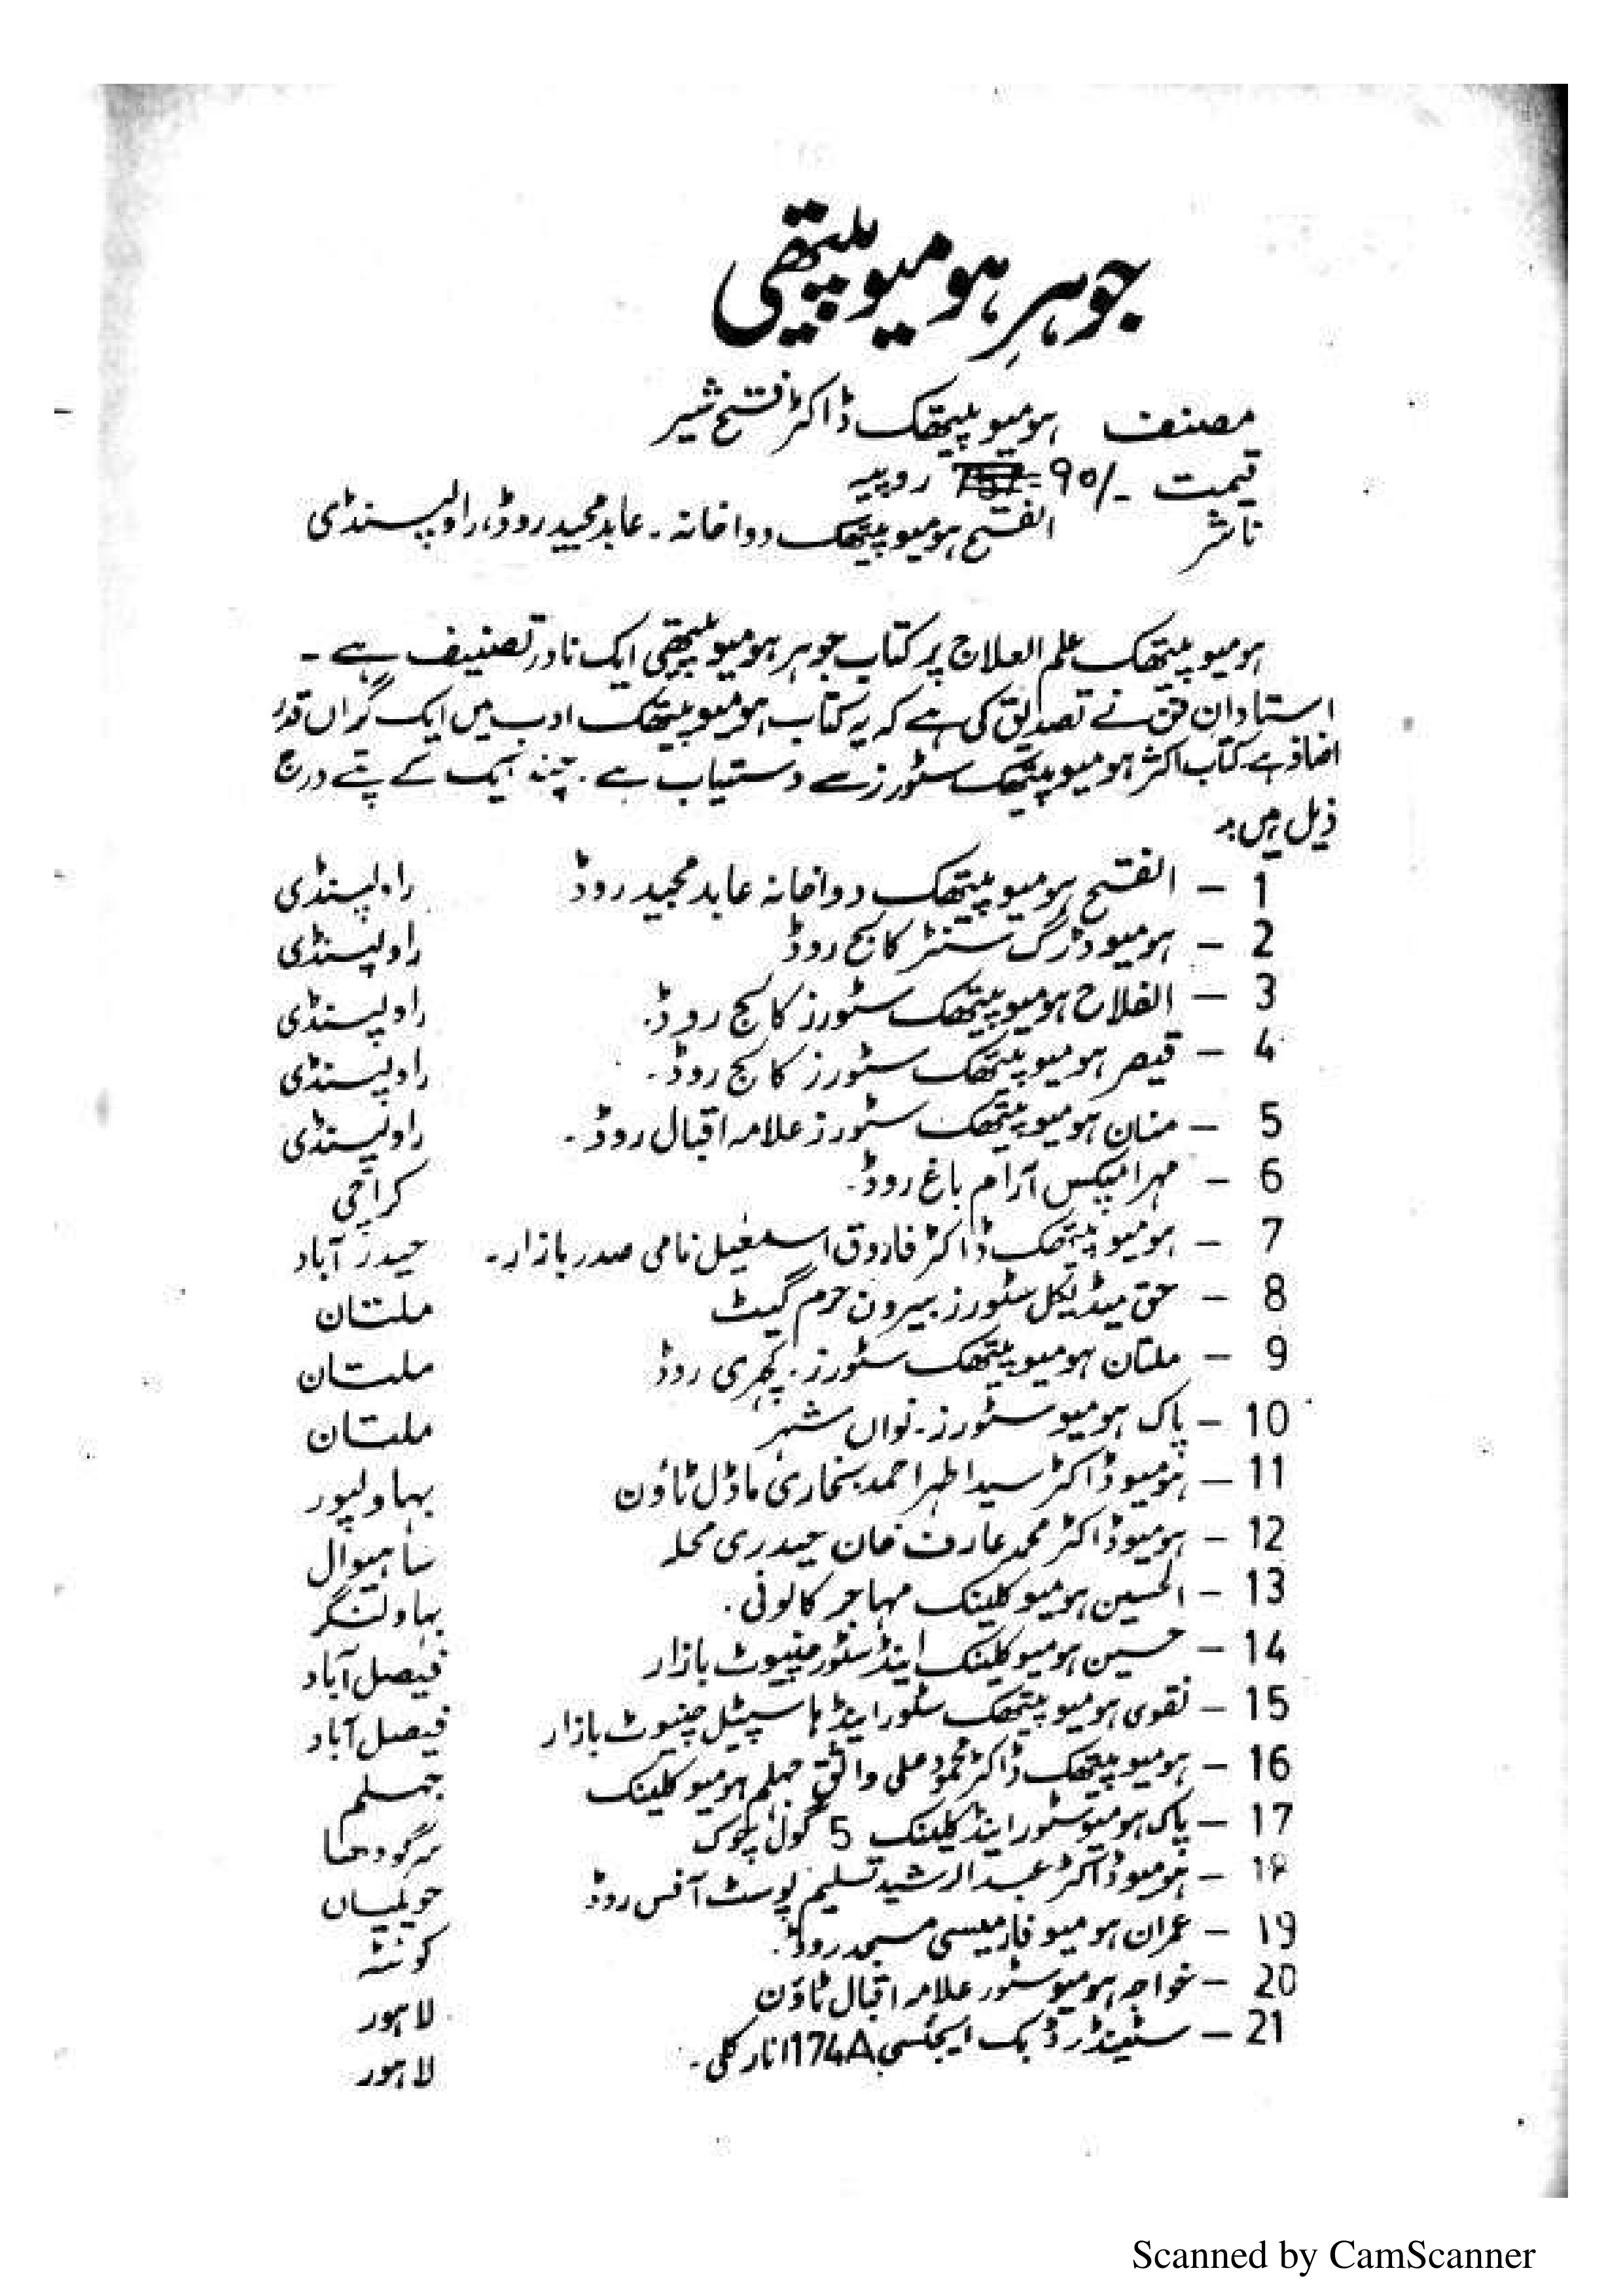 جوہرِ ہومیوپیتھی
مصنف ہومیو پیتھک ڈاکٹر فتح شیر
قیمت -/90 روپیہ
ناشر الفتح ہومیو پیتھک دواخانہ ۔ عابد مجید روڈ، راولپنڈی
ہومیو پیتھک علم العلاج پر کتاب جوہر ہومیو پیتھی ایک نادر تصنیف ہے ۔
استادان فن نے تصدیق کی ہے کہ یہ کتاب ہومیو پیتھک ادب میں ایک گراں قدر
اضافہ ہے۔ کتاب اکثر ہومیو پیتھک سٹورز سے دستیاب ہے ۔ چند ایک کے پتے درج
ذیل ہیں :۔
1 – الفتح ہومیو پیتھک دواخانہ عابد مجید روڈ راولپنڈی
2 – ہومیو ڈرگ سنٹر کالج روڈ راولپنڈی
3 – الفلاح ہومیو پیتھک سٹورز کالج روڈ. راولپنڈی
4 – قیصر ہومیو پیتھک سٹورز کالج روڈ ۔ راولپنڈی
5 – منان ہومیو پیتھک سٹورز علامہ اقبال روڈ ۔ راولپنڈی
6 – مہر امپکس آرام باغ روڈ ۔ کراچی
7 – ہومیو پیتھک ڈاکٹر فاروق اسمعیل نامی صدر بازار ۔ حیدر آباد
8 – حق میڈیکل سٹورز بیرون حرم گیٹ ملتان
9 – ملتان ہومیو پیتھک سٹورز ۔ کچہری روڈ ملتان
10 – پاک ہومیو سٹورز ۔ نواں شہر ملتان
11 – ہومیو ڈاکٹر سید اطہر احمد بخاری ماڈل ٹاؤن بہاولپور
12 – ہومیو ڈاکٹر محمد عارف خان حیدری محلہ ساہیوال
13 – الحسین ہومیو کلینک مہاجر کالونی . بہاولنگر
14 – حسین ہومیو کلینک اینڈ سٹور چنیوٹ بازار فیصل آباد
15 – نقوی ہومیو پیتھک سٹور اینڈ ہاسپیٹل چنیوٹ بازار فیصل آباد
16 – ہومیو پیتھک ڈاکٹر محمود علی واثق جہلم ہومیو کلینک جہلم
17 – پاک ہومیو سٹور اینڈ کلینک 5 گول چوک سرگودھا
18 – ہومیو ڈاکٹر عبدالرشید تسلیم پوسٹ آفس روڈ حویلیاں
19 – عمران ہومیو فارمیسی مسجد روڈ. کوئٹہ
20 – خواجہ ہومیو سٹور علامہ اقبال ٹاؤن لاہور
21 – سٹینڈرڈ بک ایجنسی 1174A انار کلی ۔ لاہور
Scanned by CamScanner